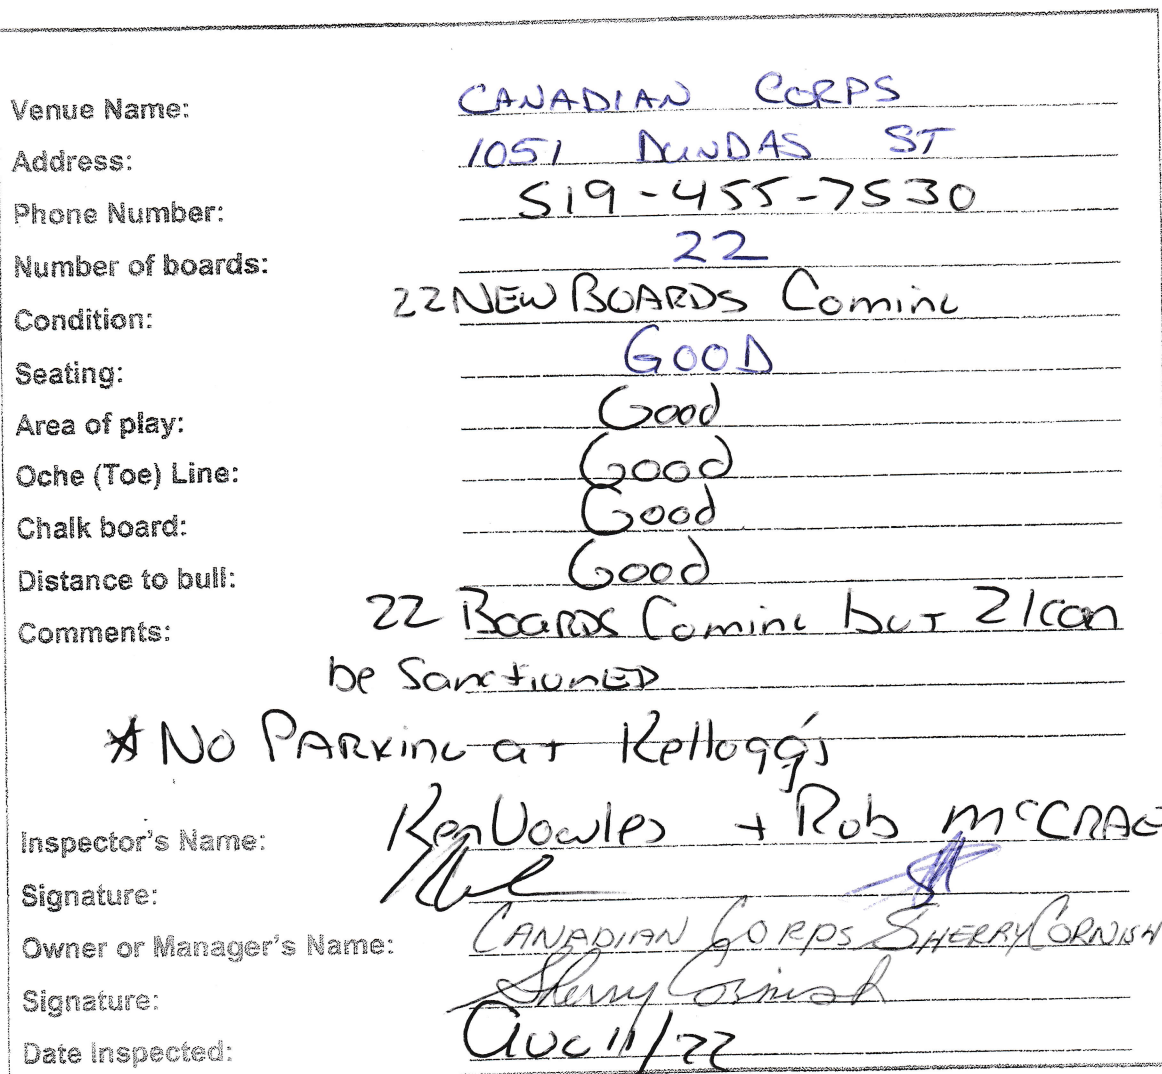 Venue Name: CANADIAN CORPS
Address: 1051 DUNDAS ST
Phone Number: 519-455-7530
Number of boards: 22
Condition: 22 NEW BOARDS Coming
Seating: GOOD
Area of play: Good
Oche (Toe) Line: Good
Chalk board: Good
Distance to bull: Good
Comments: 22 Boards Coming but 21 can
be SanctionED
* NO PARKING at Kellogg's
Inspector's Name: Ken Vowles + Rob McCRAE
Signature:
Owner or Manager's Name: CANADIAN CORPS SHERRY CORNISH
Signature: Sherry Cornish
Date Inspected: Aug 11/22